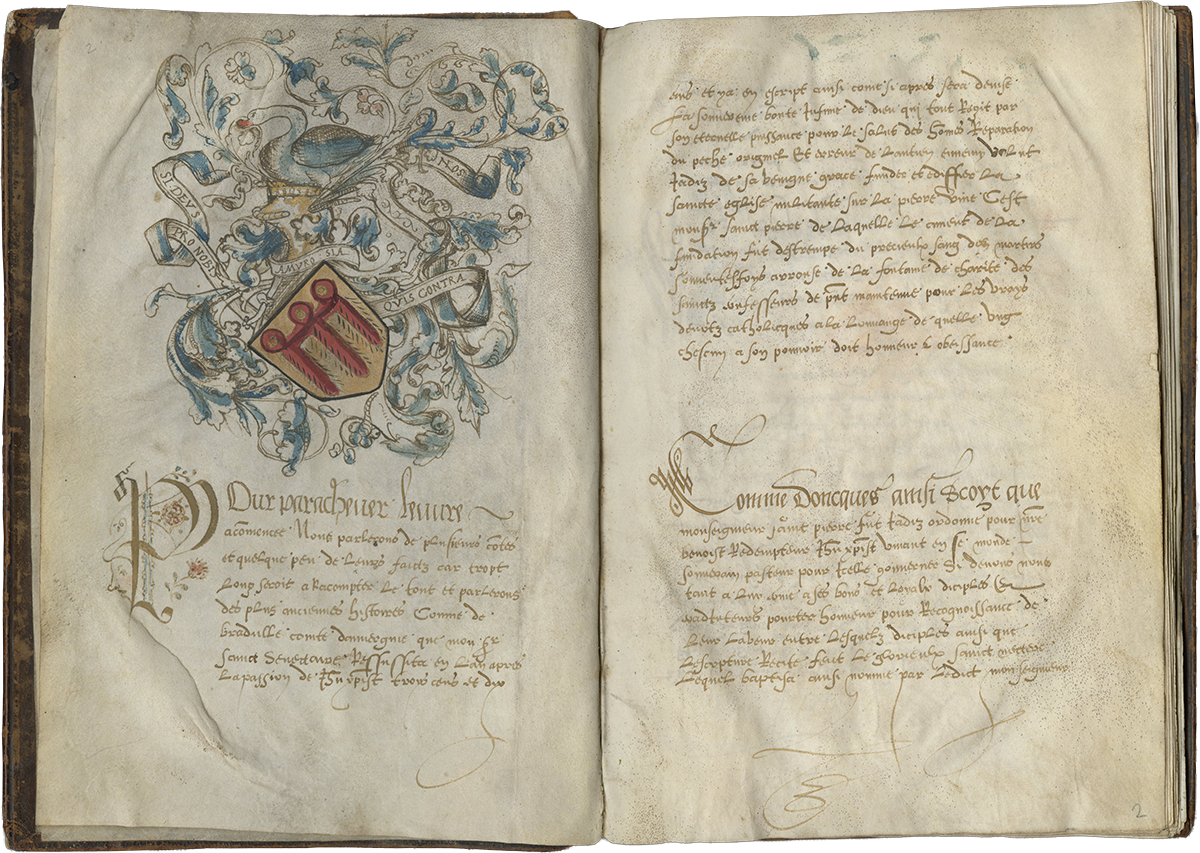 2
NOS
SI DEVS
PRO NOBIS
AMVRO SIA
QVIS CONTRA
POur parachever leuvre
acomence Nous parlerons de plusieurs contes
et quelque peu de leurs faictz car tropt
Long seroit a Racompter Le tout et parlerons
des plus anciennes histoires Comme de
bradulle comte dauvergne que mon sr
sanct Senectaire Ressussita en Lan apres
La passion de Jhu xpist troys cens et dix
cens et ya en escript ainsi come si apres sera devise
La souveraine bonte Infinie de dieu qui tout Regit par
son eternelle puissance pour Le salut des homes Reparation
du peche originel Et erreur de Lantien ennemi volut
Jadiz de sa benigne grace funder et ediffier La
saincte eglise militante sur La pierre vive Cest
monsr sainct pierre de Laquelle Le ciment de La
fundation fut destrempe du precieulx sang des martirs
souventesfoys arrouse de La fontaine de charite des
sainctz confesseurs de pnt maintenue pour Les vrays
devotz catholicques a la Louange de quelle ung
chescun a son pouvoir doit honneur & obeissance
Comme Doncques ainsi Soyt que
monseigneur sainct pierre fut Jadiz ordonne pour nre
benoist Redempteur Jhu xpist vivant en se monde
souverain pasteur pour Icelle gouverner Si devons nous
tant a Luy come a ses bons et Loyalx diciples &
coadiuteurs pourter honneur pour Recognoissance de
Leur Labeur entre Lesquelz diciples ainsi que
Lescripture Recite feut Le glorieulx sainct nectere
Lequel baptisa ainsi nomme par Ledict monseigneur
2